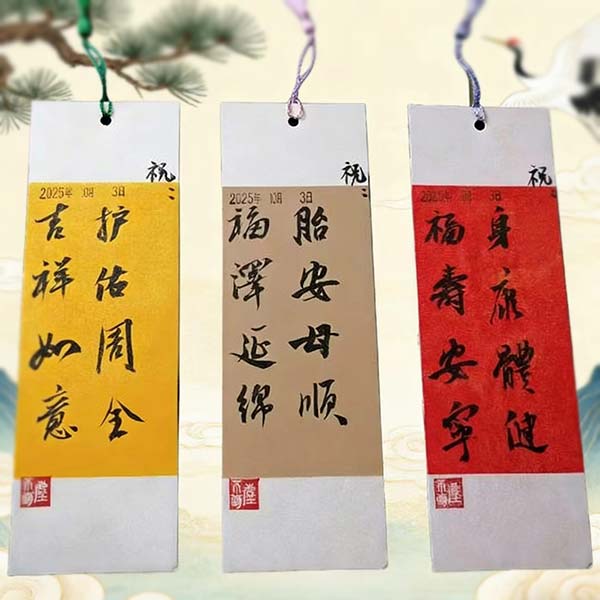 祝：
2025年 10月 3日
护佑周全
吉祥如意
祝：
2025年 10月 3日
胎安母顺
福泽延绵
祝：
2025年 10月 3日
身康體健
福寿安宁